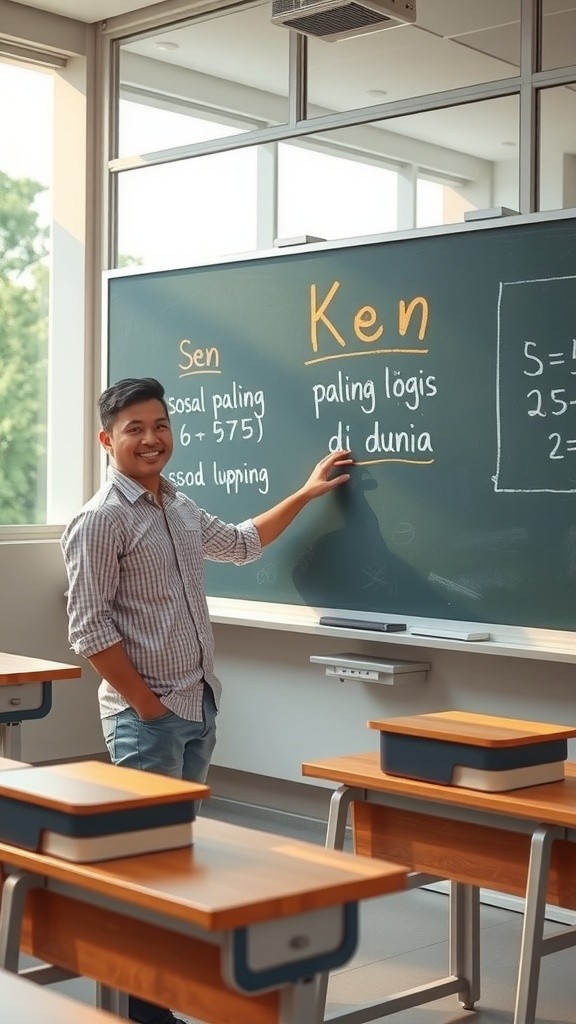 Sen
sosal paling
6 + 575)
ssod lupping
Ken
paling lögis
di dunia
S=5
25-
2=